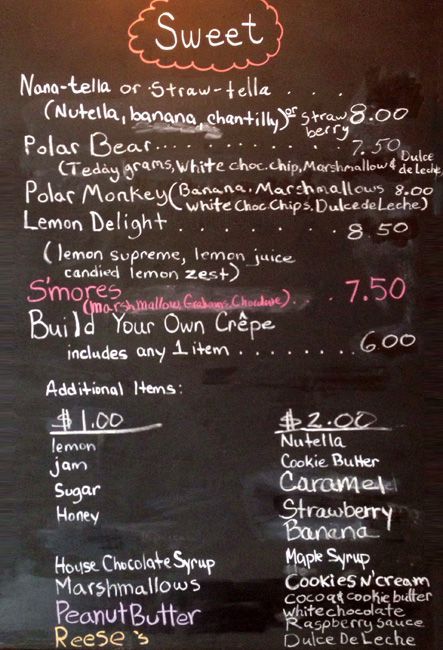 Sweet
Nana-tella or Straw-tella . . . .
(Nutella, banana, chantilly) or Strawberry 8.00
Polar Bear.................. 7.50
(Teddy grams, White choc. chip, Marshmallow & Dulce de leche)
Polar Monkey (Banana, Marshmallows 8.00
White Choc Chips, Dulce de Leche)
Lemon Delight . . . . . . . . . . 8 50
(lemon supreme, lemon juice
candied lemon zest)
S'mores (Marshmallow, Grahams, Chocolate) . . . 7.50
Build Your Own Crêpe
includes any 1 item . . . . . . . . 6.00
Additional Items:
$1.00
lemon
jam
Sugar
Honey
House Chocolate Syrup
Marshmallows
Peanut Butter
Reese's
$2.00
Nutella
Cookie Butter
Caramel
Strawberry
Banana
Maple Syrup
Cookies N' cream
Cocoa & cookie butter
White chocolate
Raspberry Sauce
Dulce De Leche